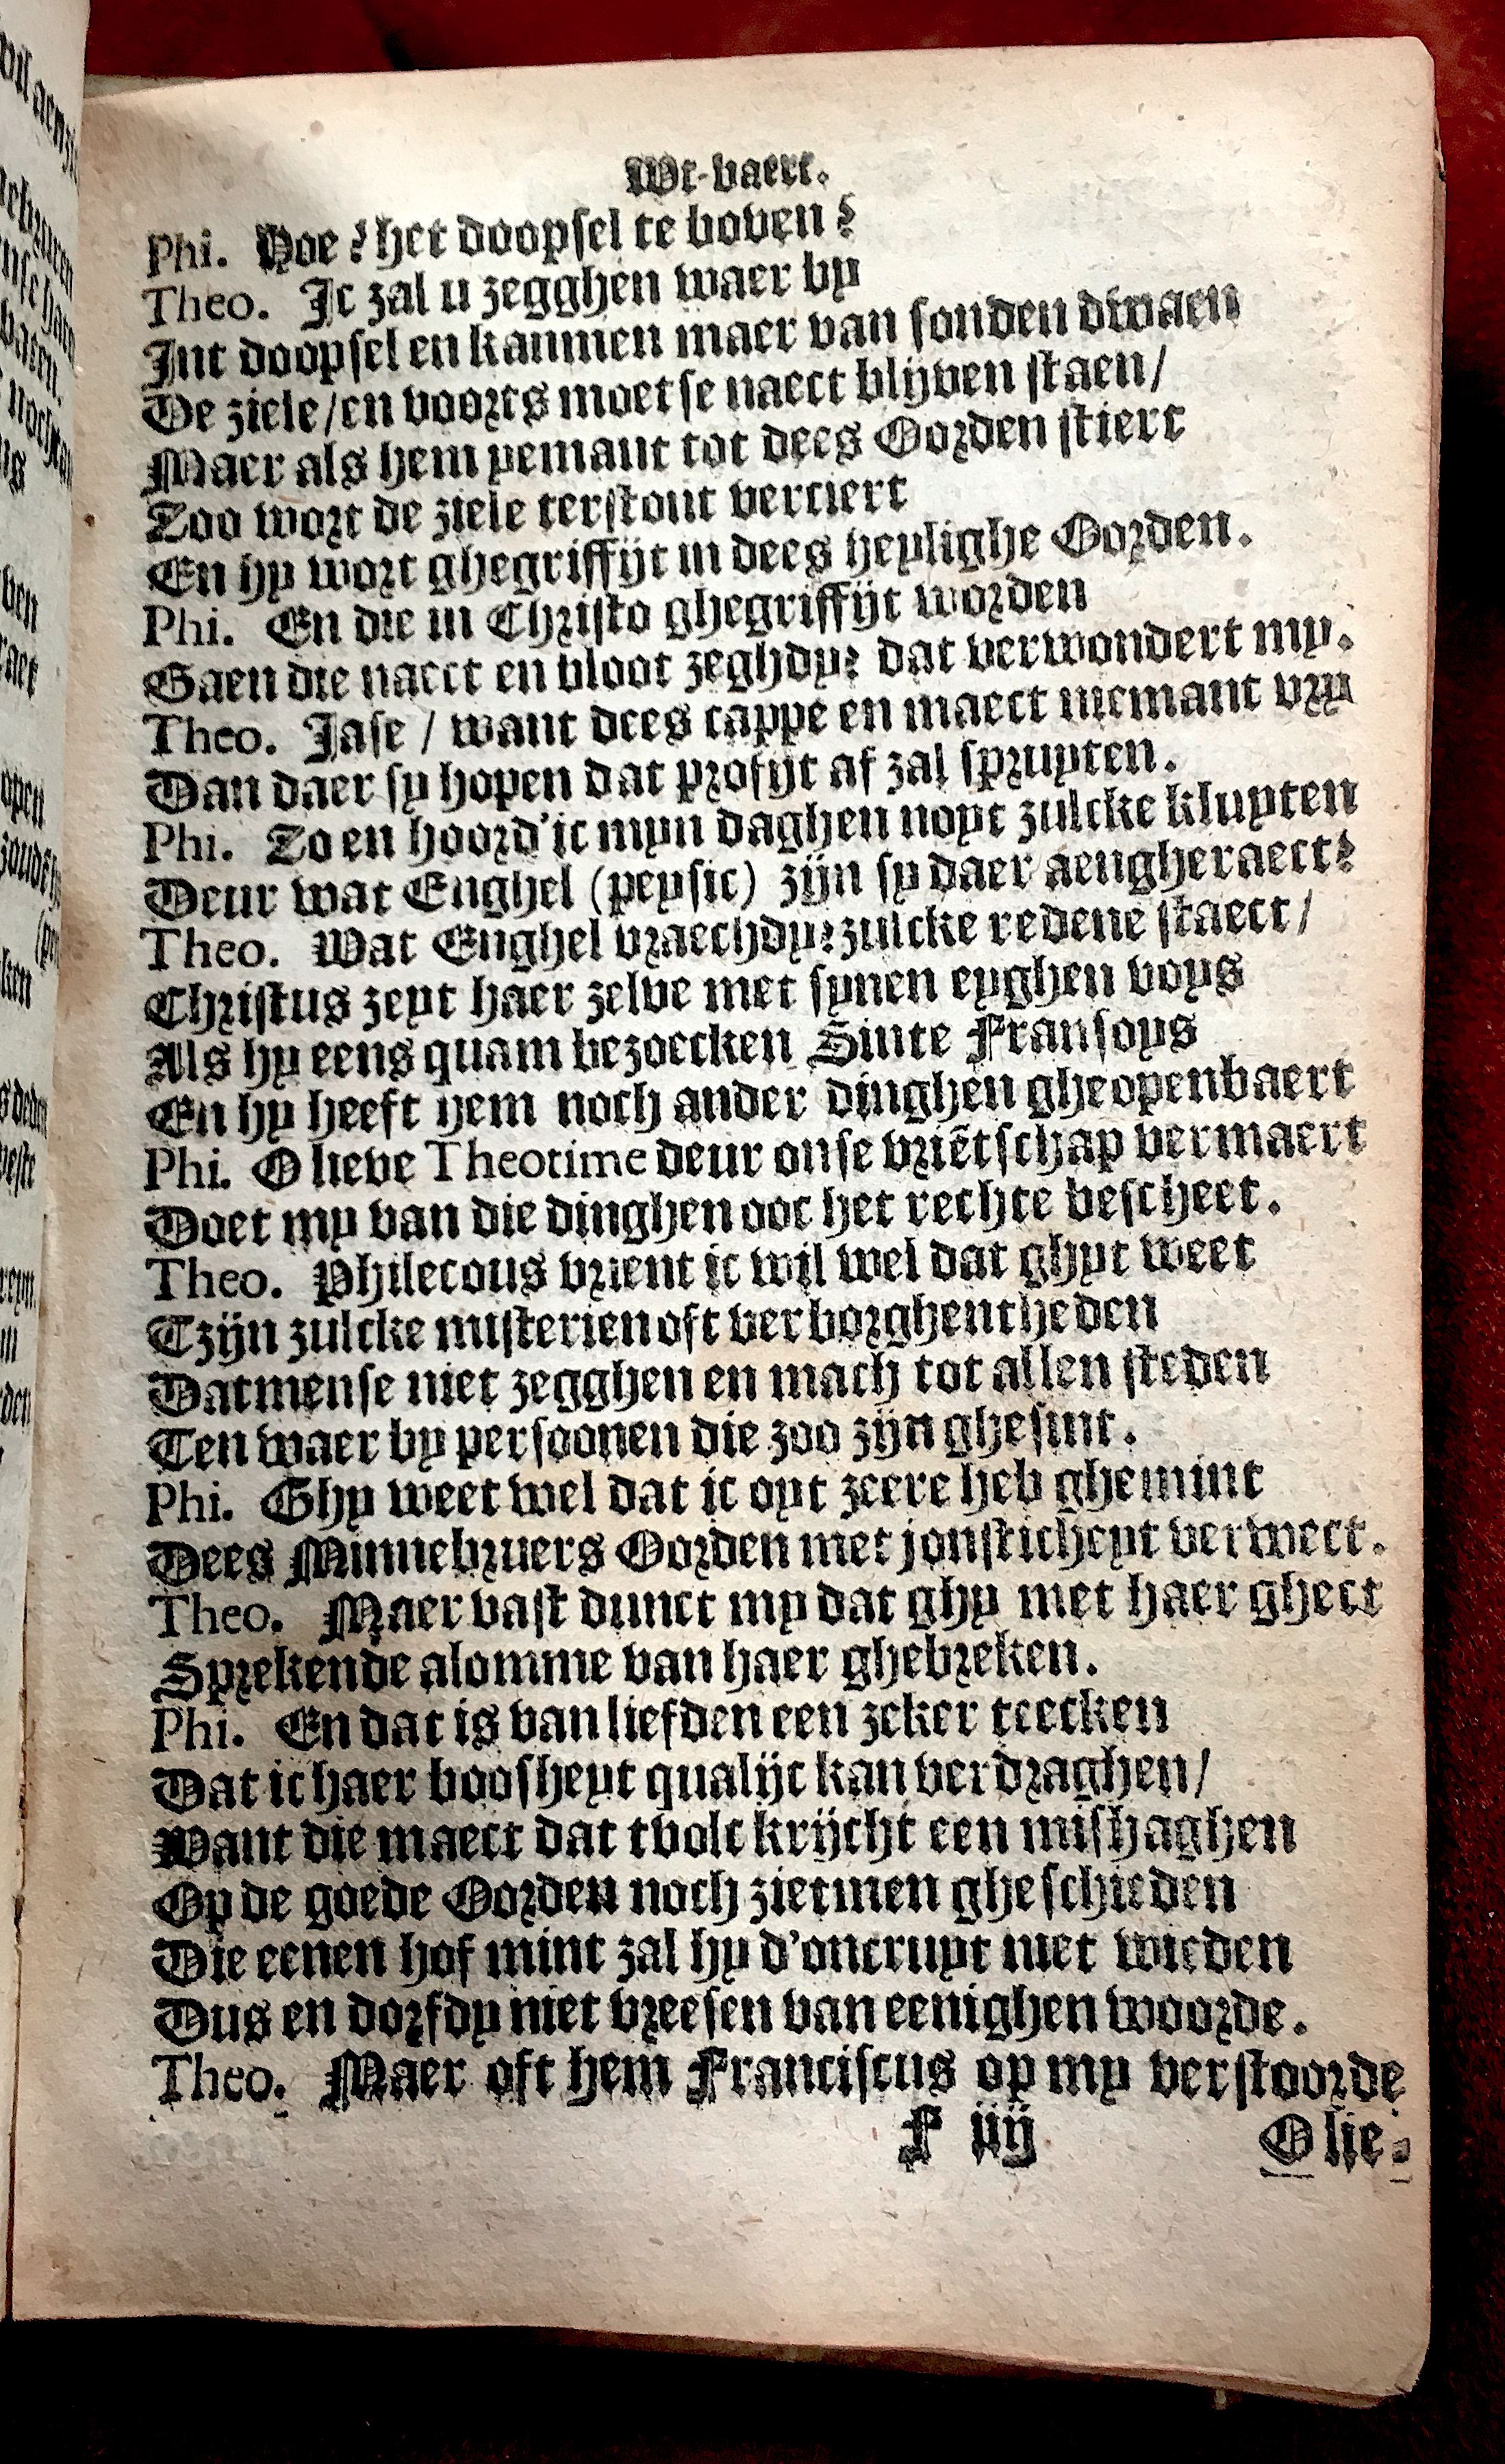 Wt-vaert.
Phi. Hoe? het doopsel te boven?
Theo. Ic zal u zegghen waer by
Int doopsel en kanmen maer van sonden dwaen
De ziele/en voorts moetse naect blijven staen/
Maer als hem yemant tot dees Oorden stiert
Zoo wort de ziele terstont verciert
En hy wort ghegriffijt in dees heylighe Oorden.
Phi. En die in Christo ghegriffijt worden
Gaen die naect en bloot zeghdy? dat verwondert my.
Theo. Jase / want dees cappe en maect niemant vry
Dan daer sy hopen dat profijt af zal spruyten.
Phi. Zo en hoord'ic myn daghen noyt zulcke kluyten
Deur wat Enghel (peysic) zijn sy daer aengheraect?
Theo. Wat Enghel vraechdy? zulcke redene staect/
Christus zeyt haer zelve met synen eyghen voys
Als hy eens quam bezoecken Sinte Fransoys
En hy heeft hem noch ander dinghen gheopenbaert
Phi. O lieve Theotime deur onse vriẽtschap vermaert
Doet my van die dinghen ooc het rechte bescheet.
Theo. Philecous vrient ic wil wel dat ghyt weet
Tzijn zulcke misterien oft verborghentheden
Datmense niet zegghen en mach tot allen steden
Ten waer by persoonen die zoo zijn ghesint.
Phi. Ghy weet wel dat ic oyt zeere heb ghemint
Dees Minnebruers Oorden met jonsticheyt verwect.
Theo. Maer vast dunct my dat ghy met haer ghect
Sprekende alomme van haer ghebreken.
Phi. En dat is van liefden een zeker teecken
Dat ic haer boosheyt qualijc kan verdraghen/
Want die maect dat tvolc krijcht een mishaghen
Op de goede Oorden noch zietmen gheschieden
Die eenen hof mint zal hy d'oncruyt niet wieden
Dus en dorfdy niet vreesen van eenighen woorde.
Theo. Maer oft hem Franciscus op my verstoorde
F iiij
O lie-